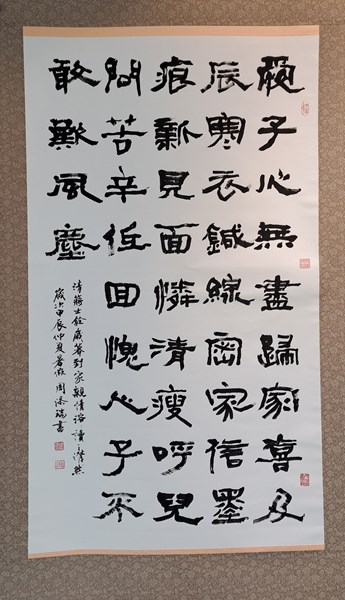 愛子心無盡歸家喜及
辰寒衣鍼線密家信墨
痕新見面憐清瘦呼兒
問苦辛低回愧人子不
敢歎風塵
清蔣士銓歲暮到家親情讀之潸然
歲次甲辰仲夏暑假周添瑞書